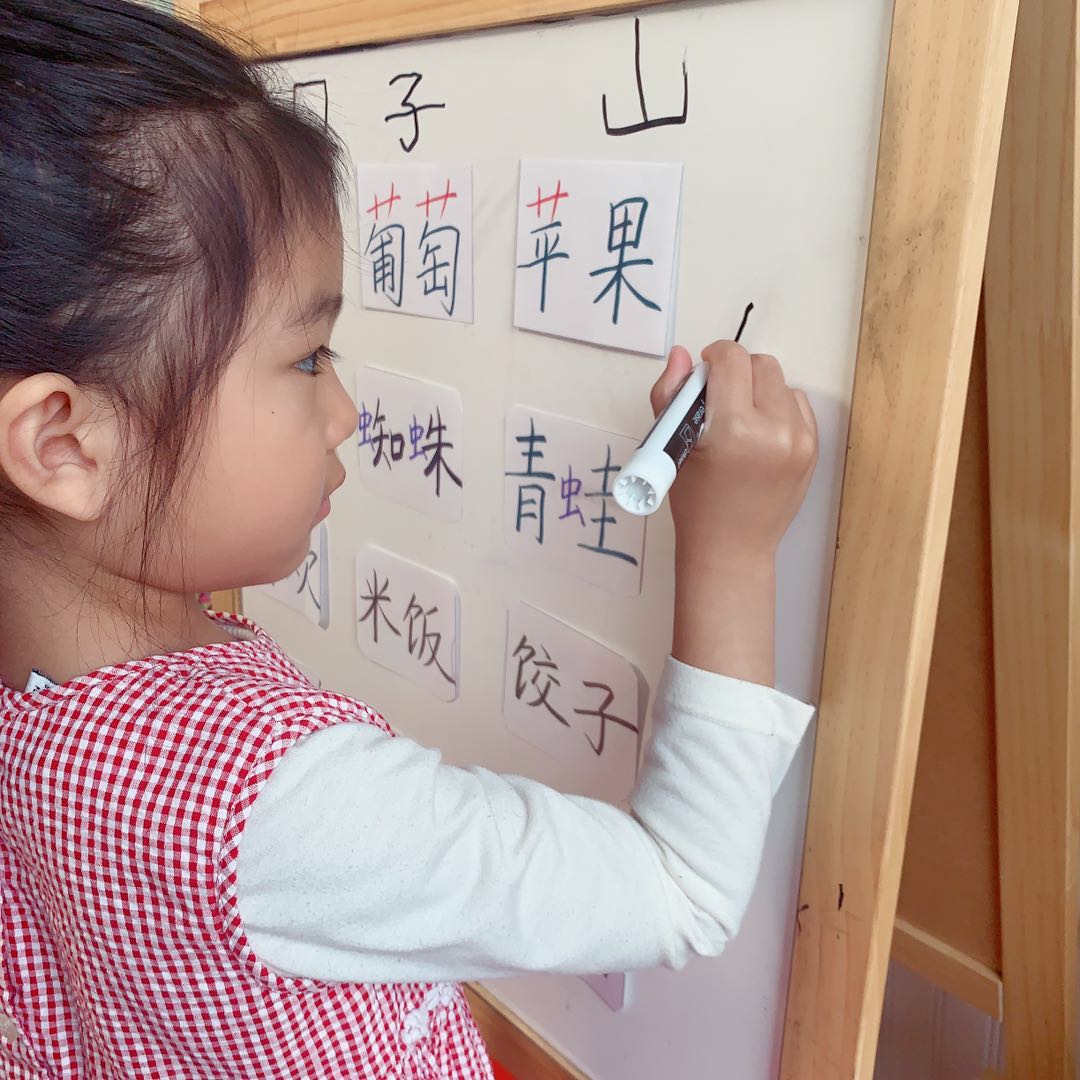 子 山
葡萄 苹果
蜘蛛 青蛙
米饭 饺子